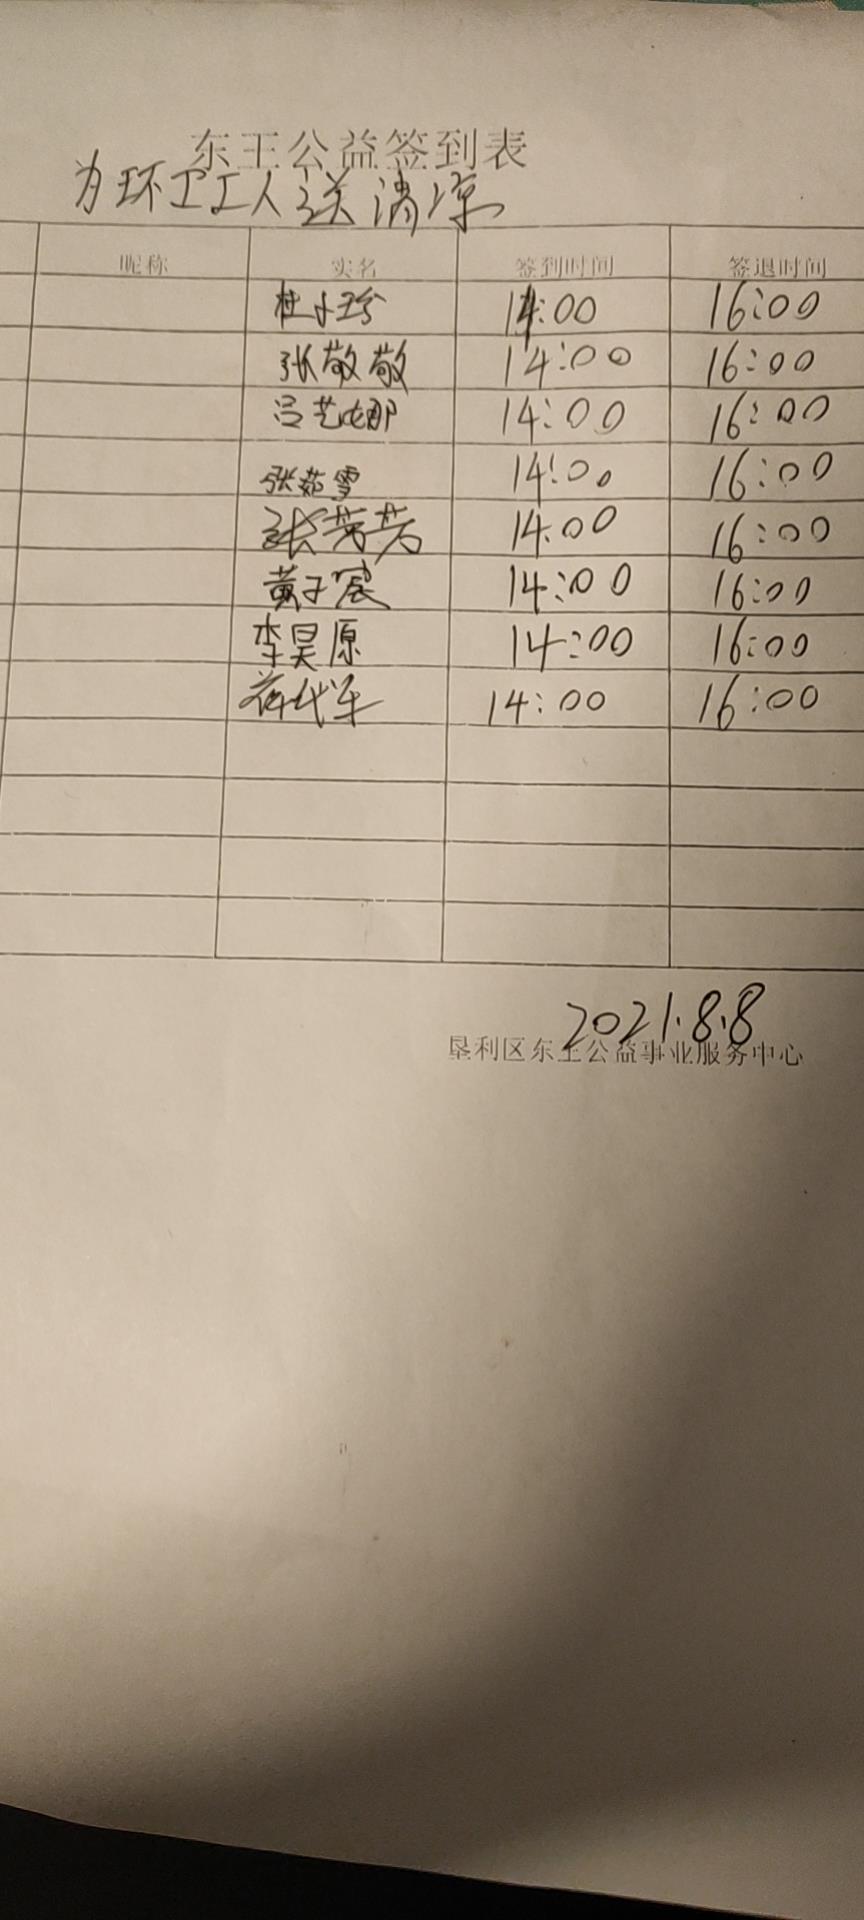 东王公益签到表
为环卫工人送清凉
昵称 实名 签到时间 签退时间
杜小珍 14:00 16:00
张敬敬 14:00 16:00
吕艺娜 14:00 16:00
张茹雪 14:00 16:00
张芳芳 14:00 16:00
黄子宸 14:00 16:00
李昊原 14:00 16:00
14:00 16:00
2021.8.8
垦利区东王公益事业服务中心